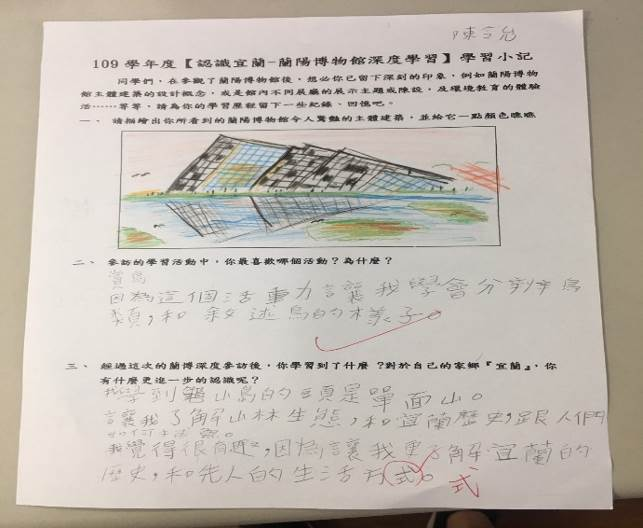 109 學年度【認識宜蘭-蘭陽博物館深度學習】學習小記
同學們，在參觀了蘭陽博物館後，想必你已留下深刻的印象，例如蘭陽博物
館主體建築的設計概念，或是館內不同展廳的展示主題或陳設，及環境教育的體驗
活⋯⋯等等，請為你的學習歷程留下一些紀錄、回憶吧。
一、 請描繪出你所看到的蘭陽博物館令人驚豔的主體建築，並給它一點顏色瞧瞧
二、 參訪的學習活動中，你最喜歡哪個活動？為什麼？
賞鳥
因為這個活動讓我學會分辨鳥
類，和敘述鳥的樣子。
三、 經過這次的蘭博深度參訪後，你學習到了什麼？對於自己的家鄉『宜蘭』，你
有什麼更進一步的認識呢？
我學到龜山島的頭是單面山。
讓我了解山林生態，和宜蘭歷史，跟人們
如何生活。
我覺得很有趣，因為讓我更了解宜蘭的
歷史，和先人的生活方式。
式